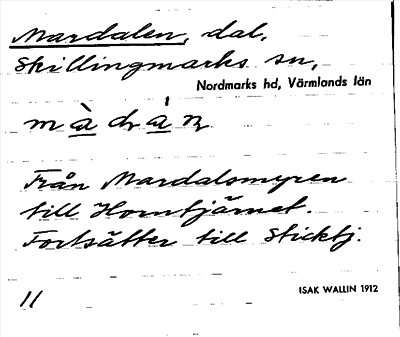 Mardalen, dal,
Skillingmarks sn,
Nordmarks hd, Värmlands län
Från Mardalsmyren
till Horntjärnet.
Fortsätter till Sticktj.
11
ISAK WALLIN 1912